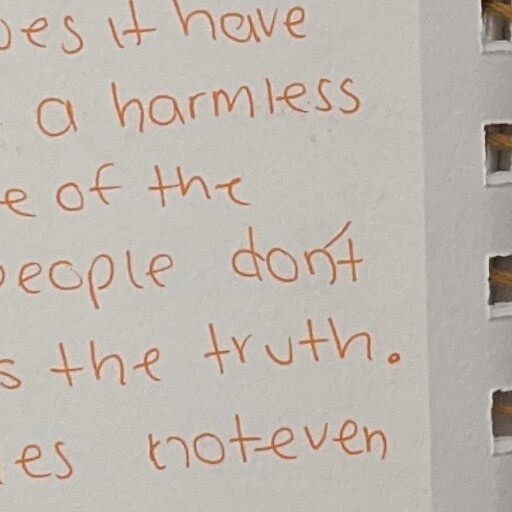 oes it have
a harmless
e of the
people don't
s the truth.
es not even